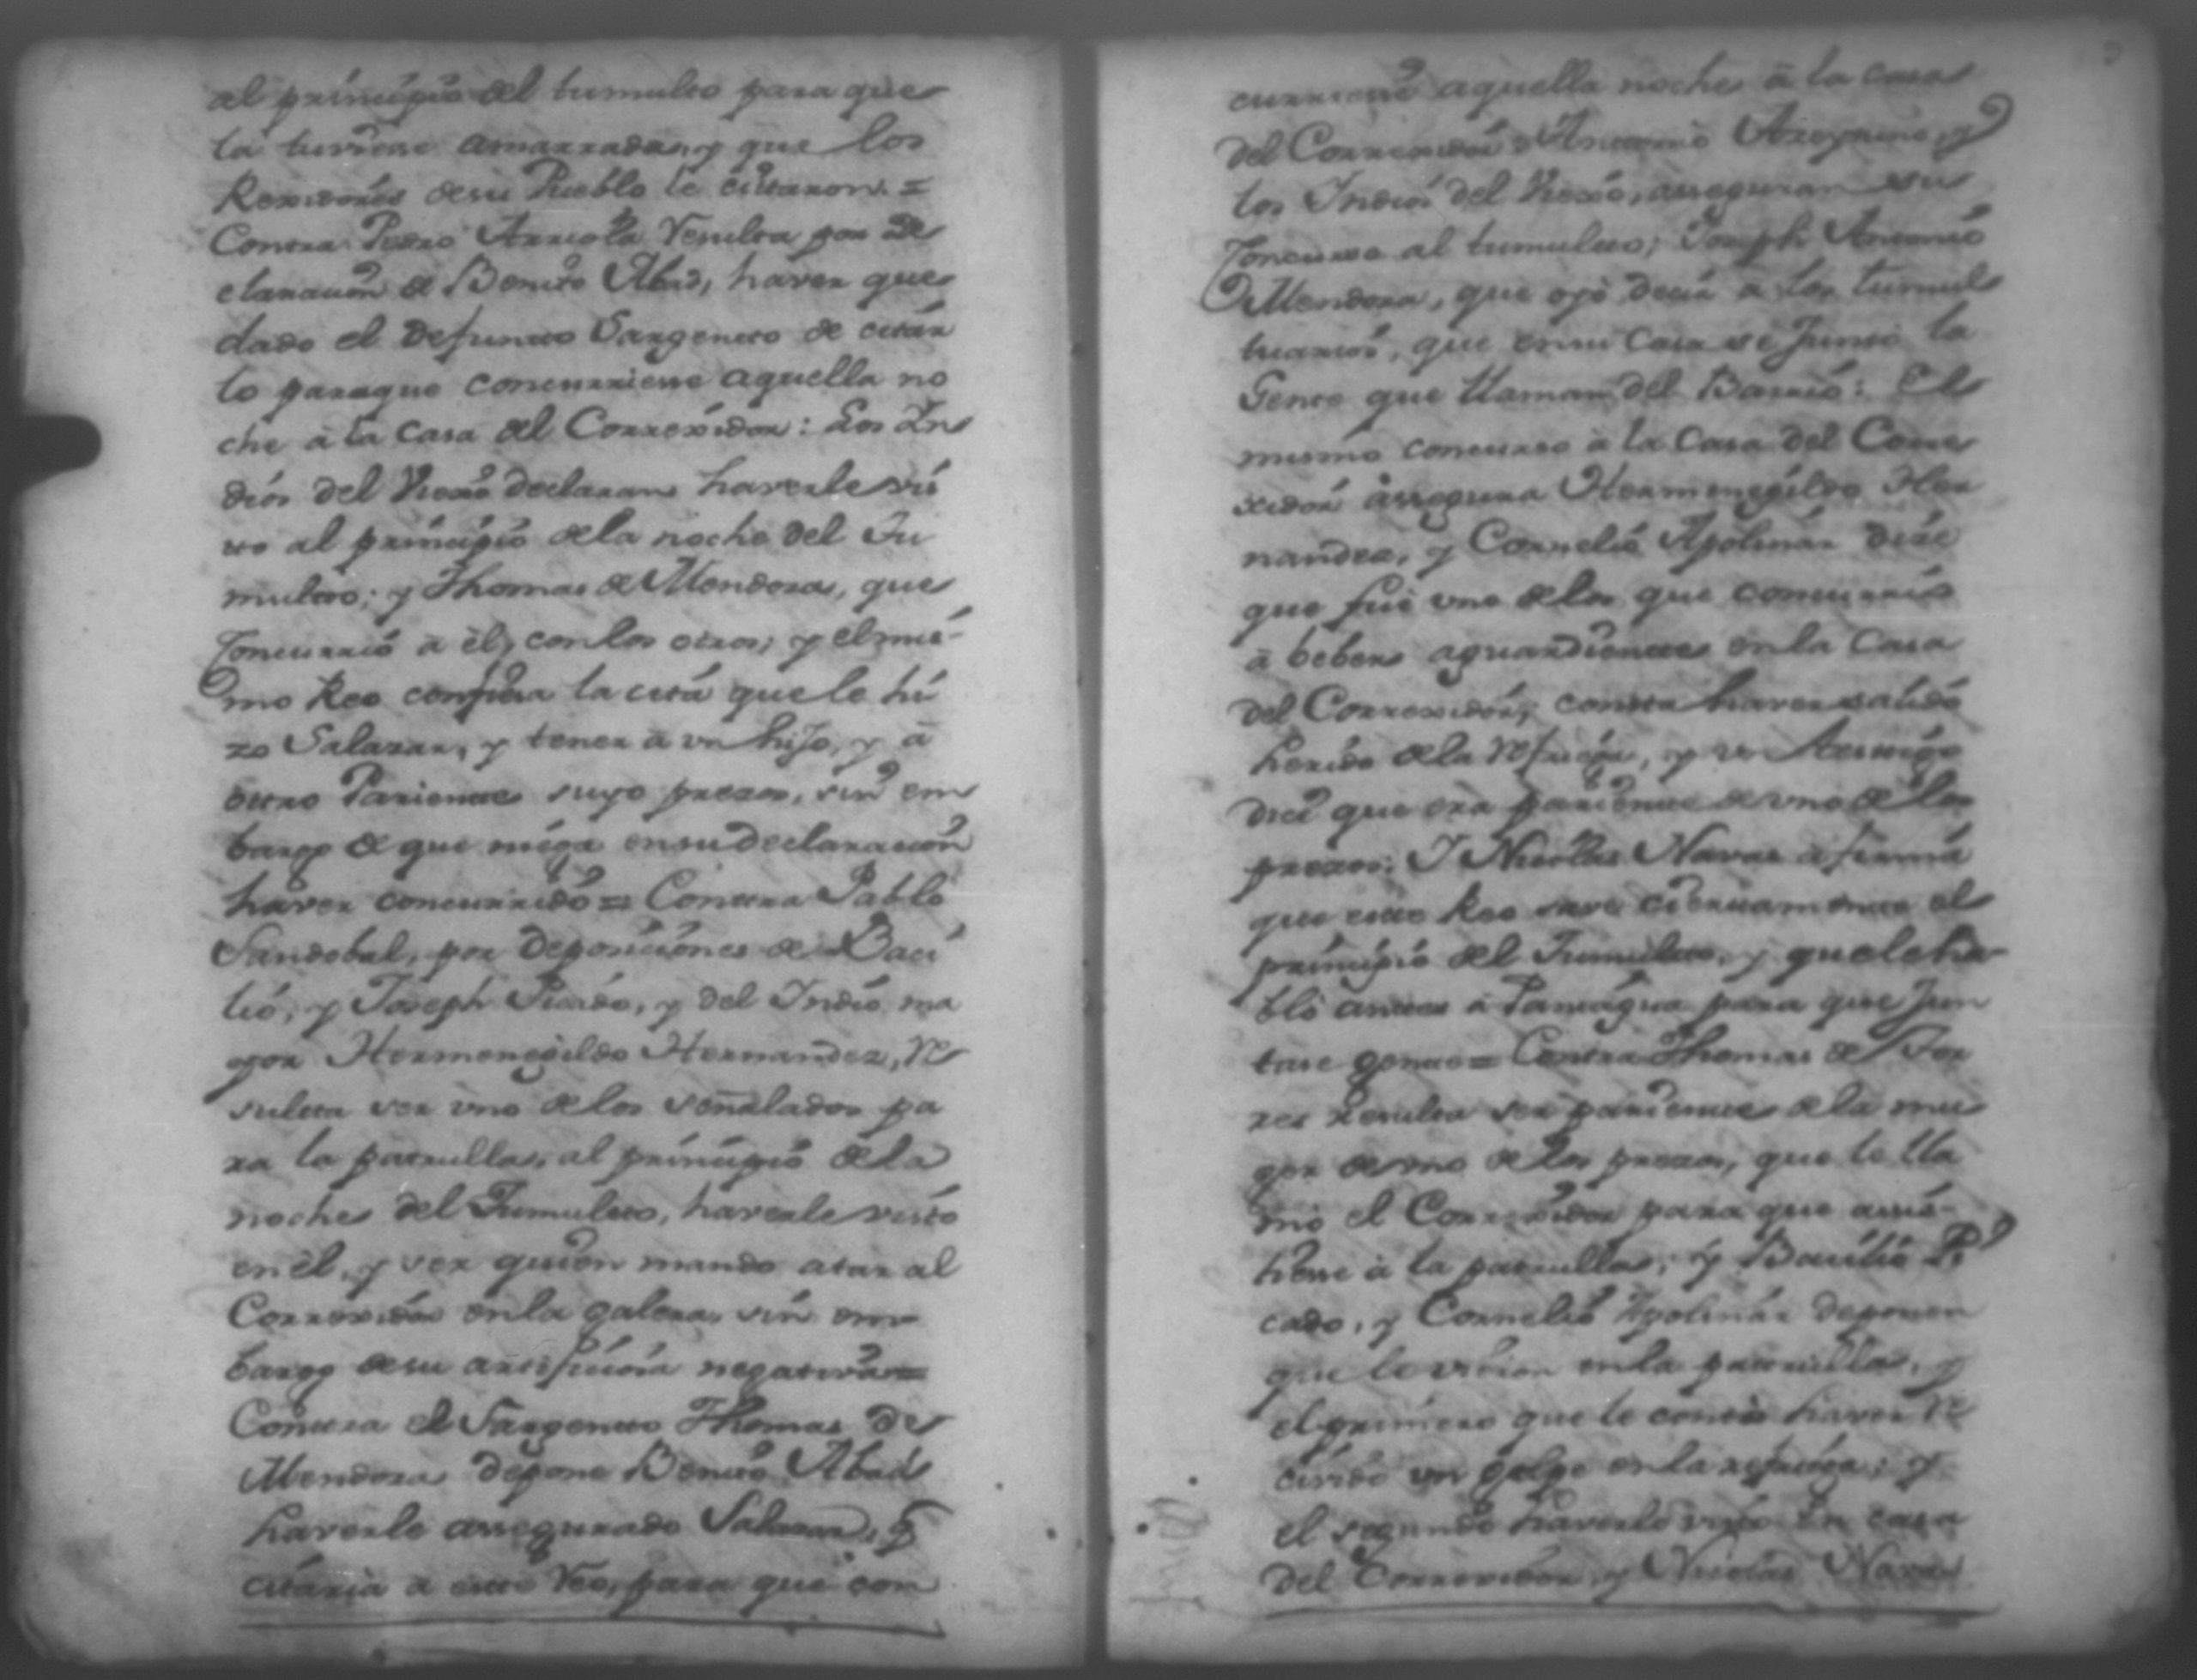 al prinċipio del tumulto para que
la tuviese amarrada, y que los
Rexidores desu Pueblo le citaron. =
Contra Pedro Arriola resulta por de
claracion de Benito Abad, haver que
dado el defuncto Sargento de citar
lo paraque concurriesse aquella no
che à la Casa del Correxidor: Los In
dios del declaran haverle vis
to al principio dela noche del Tu
multo; y Thomas de Mendoza, que
Concurrió à èl, con los otros; y el mis-
mo Reo confiesa la cita que le hi
zo Salazar, y tener à un hijo, y à
otro Pariente suyo prezos, sin em
bargo de que niega ensu declaracion
haver concurrido = Contra Pablo
Sandobal, por deposiciones de Baci
lio, y Joseph Picado, y del Indio ma
yor Hermenegildo Hernandez, re
sulta ser uno delos señalados pa
ra la patrulla, al principio dela
noche del Tumulto, haverle visto
en èl, y ser quien mando atar al
Correxidor enla galera, sin em
bargo desu negativa =
Contra el Sargento Thomas de
Mendoza depone Benito Abad
haverle assegurado Salazar, q
citaria à este reo, para que con
curriesse aquella noche à la casa
del Correxidor: Antonio y
los Indios del asseguran su
Concurso al tumulto; Joseph Antonio
Mendoza, que oyò decir à los tumul
tuarios, que ensu Casa se Juntó la
Gente que llaman del Barrio: El
mismo concurso à la Casa del Corre
xidor assegura Hermenegildo Her
nandez, y Cornelio Apolinar dize
que fue uno delos que concurrió
à beber aguardiente enla Casa
del Correxidor; consta haver salido
herido dela refriega, y un testigo
dice que era pariente de uno delos
prezos; Y Nicolas Navas afirma
que este Reo el
principio del Tumulto, y que le ha-
bló antes à Paniagua para que Jun
tase gente = Contra Thomas de Tor
res resulta ser pariente dela mu
ger de uno delos prezos, que le lla
mó el Correxidor para que asis-
tiesse à la patrulla; y Basilio Pi
cado, y Cornelio Apolinar deponen
que le vieron enla patrulla, y
el primero que le contó haver re
civido un golpe enla refriega; y
el segundo haverlo visto En casa
del Correxidor, y Nicolas Navas